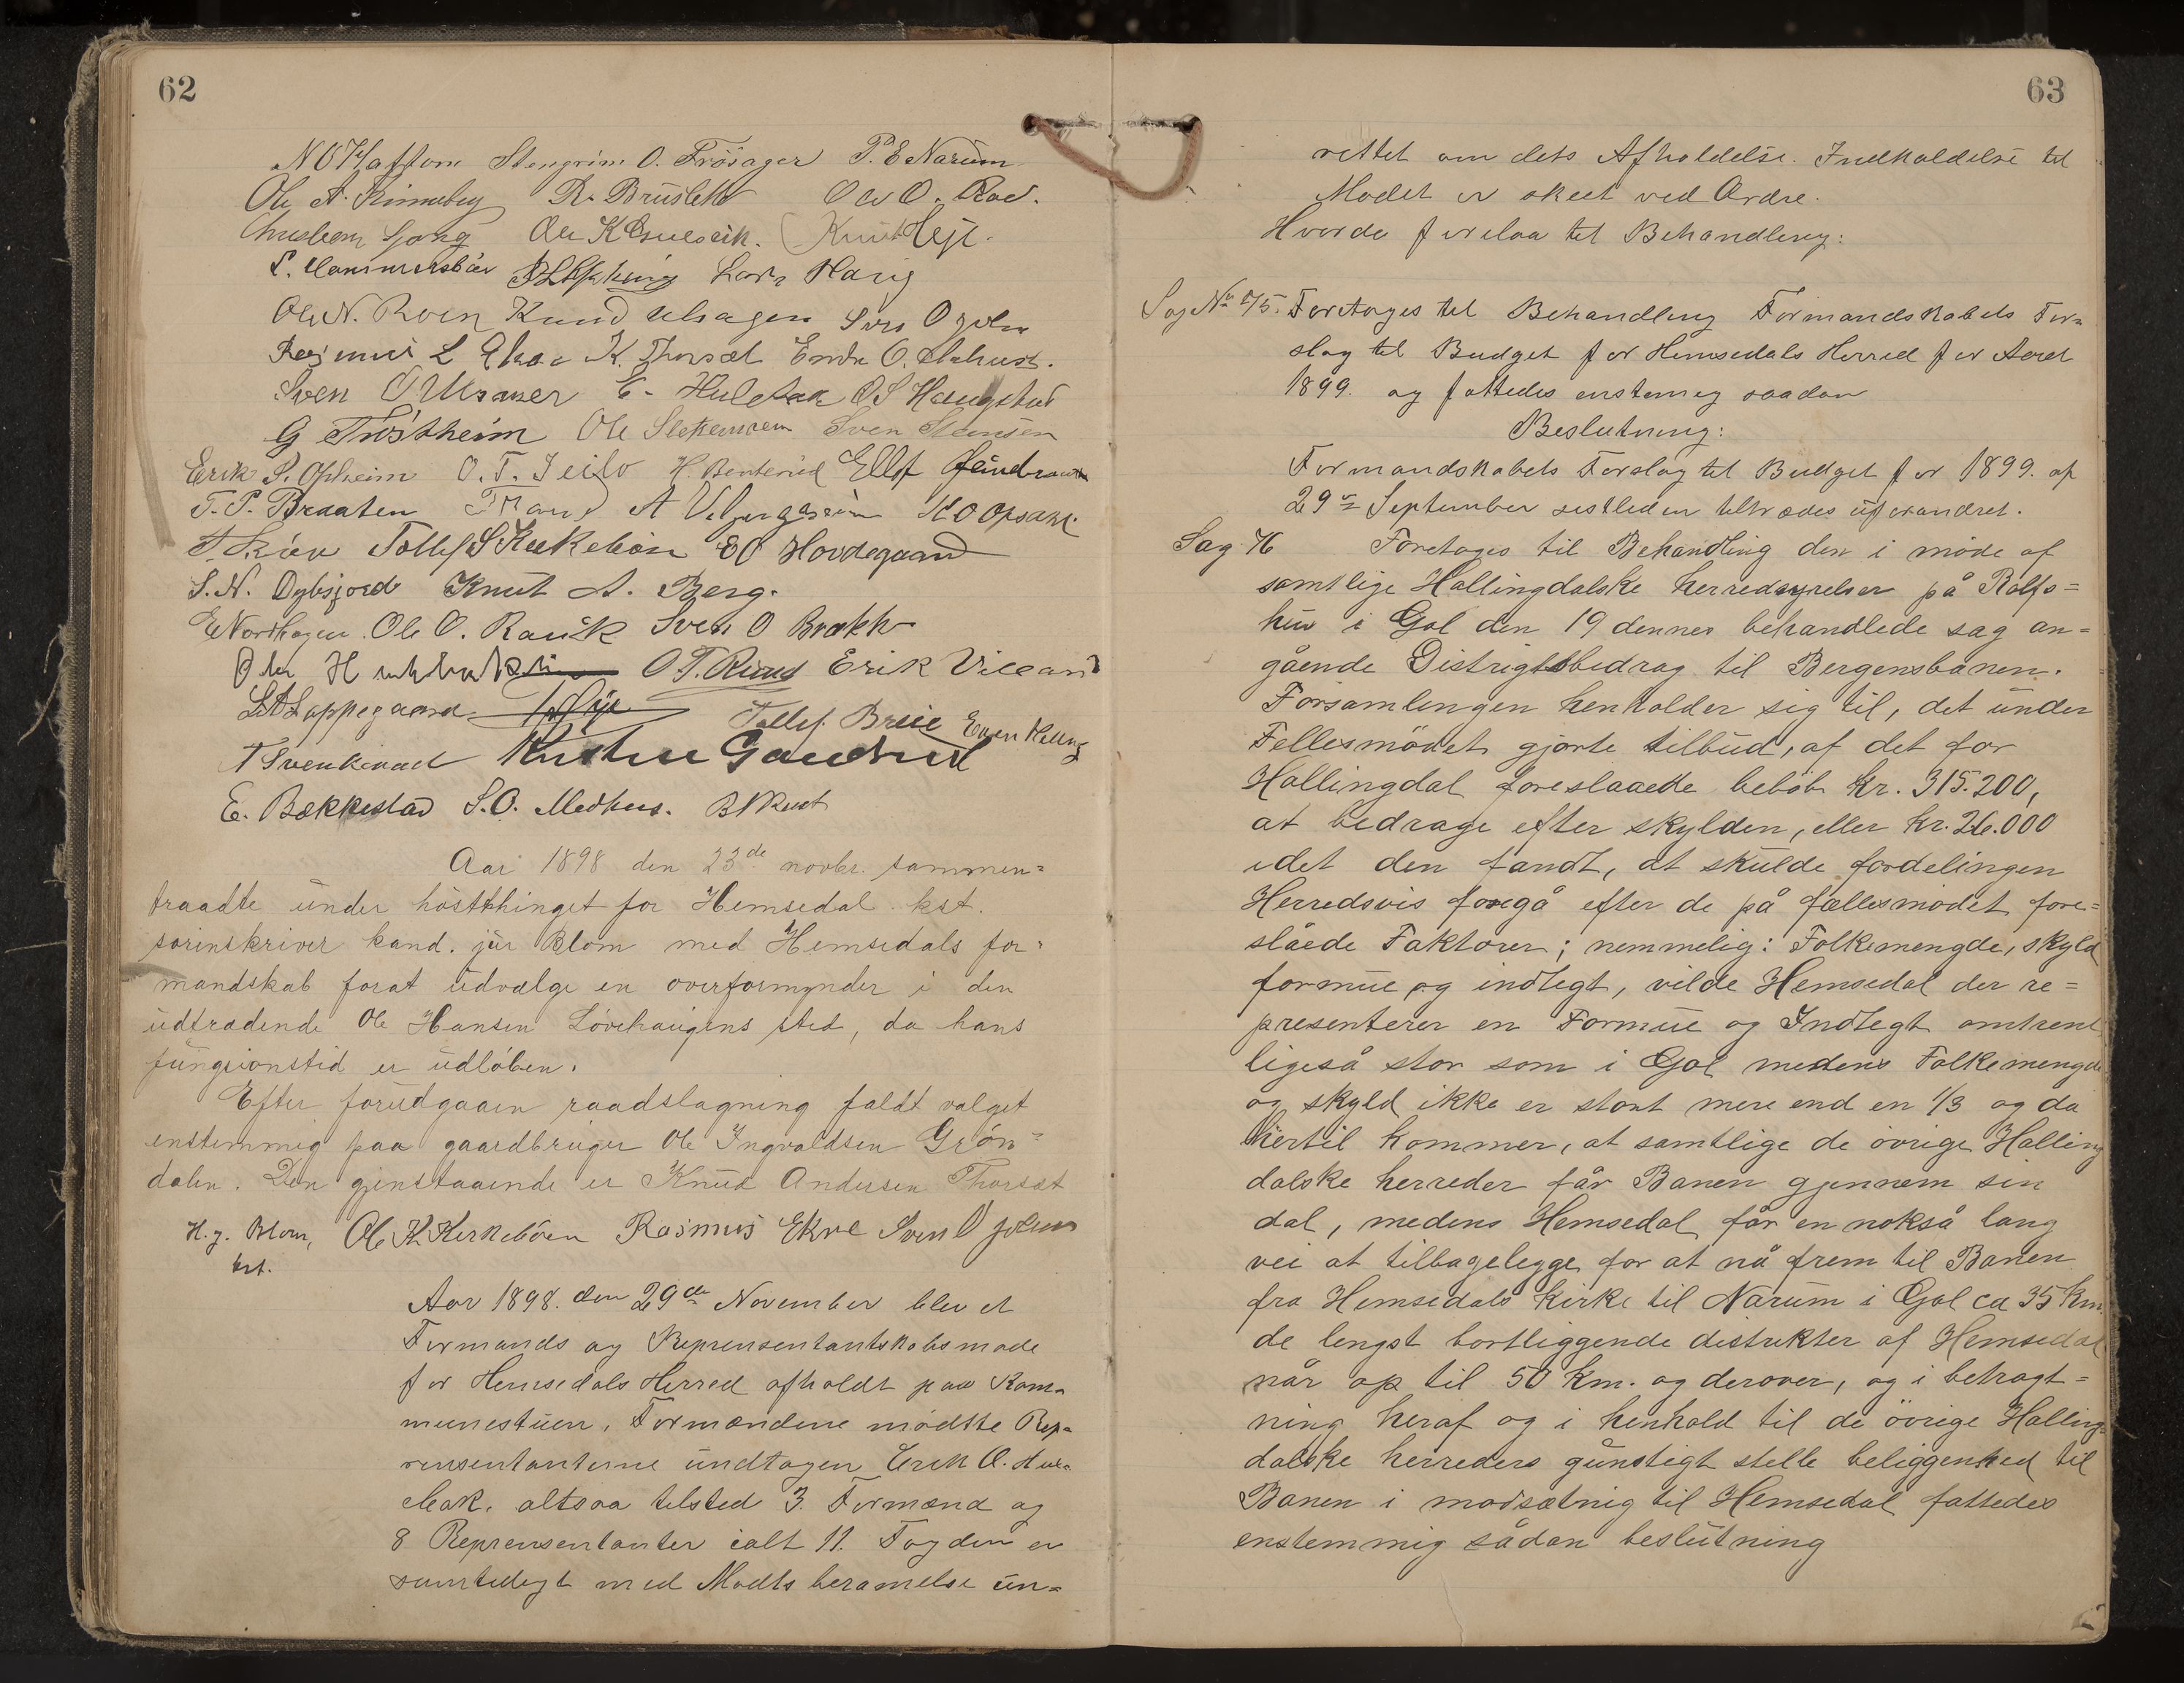 62
N O Steingrim O. Trösager P. E Narum
Ole A. R. Bruslette Ole O. Roe.
Ole K Knut
S. Lars Haug
Ole N. Roen Knud Ulsagen Sven O
Rasmus L Ekre K. Thorset Endre O.
Sven O E. Huletak O S Haugstad
G Tröstheim Ole Sven Stensen
Erik S. Opheim O. T. Ellef
T. P. Braaten A K O Opsahl
Tollef S Kirkeböen E O Hovdegaard
S. N. Knut A. Berg.
E Nordhagen Ole O. Sven O
O. T. Ruud Erik
Lappegaard Tollef Even
Gandrud
E. Bækkestad S. O. Medhus.
Aar 1898 den 23de novbr. sammen=
traadte under höstthinget for Hemsedal kst.
sorinskriver kand. jur Blom med Hemsedals for=
mandskab forat udvælge en overformynder i den
udtrædende Ole Hansen Lövehaugens sted, da hans
fungsionstid er udlöben.
Efter forudgaaen raadslagning faldt valget
enstemmig paa gaardbruger Ole Ingvaldsen Grön=
dalen. Den gjenstaaende er Knud Andersen Thorset
H. J. Blom, Ole K. Kirkeböen Rasmus Ekre Sven O
kst.
Aar 1898. den 29de November blev et
Formands og Reprensentantskabsmøde
for Hemsedals Herred afholdt paa Kom=
munestuen. Formændene mødtte Rep=
rensentanterne undtagen Erik O. Hul=
ebak. altsaa tilsted 3. Formænd og
8 Reprensentanter ialt 11. Fogden er
samtidigt med Mødts beramelse un=
63
rettet om dets Afholdelse. Indkaldelse til
Mødet er skeet ved Ordre.
Hvorda forelaa til Behandling:
Sag No 75. Foretages til Behandling Formandskabets For=
slag til Budget for Hemsedals Herred for Aaret
1899. og fattedes enstemig saadan
Beslutning:
Formandskabets Forslag til Budget for 1899. af
29de September sistleden tiltrædes uforandret.
Sag 76 Foretages til Behandling den i möde af
samtlige Hallingdalske herredsyrelser på Rolfs=
hus i Gol den 19 dennes behandlede sag an=
gående Distrigtsbedrag til Bergensbanen.
Forsamlingen henholder sig til, det under
Fellesmödet gjorte tilbud, af det for
Hallingdal foreslaaede belöb kr. 315.200,
at bedrage efter skylden, eller kr. 26.000
idet den fandt, at skulde fordelingen
Herredsvis foregå efter de på fællesmödet fore=
slåede Faktorer; nemmelig: Folkemengde, skyld
formue og indtegt, vilde Hemsedal der re=
presenterer en Formue og Indtegt omtrent
ligeså stor som i Gol medens Folkemengde
og skyld ikke er stort mere end en 1/3 og da
hertil kommer, at samtlige de övrige Halling
dalske herreder får Banen gjennem sin
dal, medens Hemsedal får en nokså lang
vei at tilbagelegge for at nå frem til Banen
fra Hemsedals kirke til Narum i Gol ca 35 km.
de lengst bortliggende distrikter af Hemsedal
når op til 50 km. og derover, og i betragt=
ning heraf og i henhold til de övrige Halling=
dalske herreders gunstigt stelle beliggenhed til
Banen i modsætnig til Hemsedal fattedes
enstemmig sådan beslutning